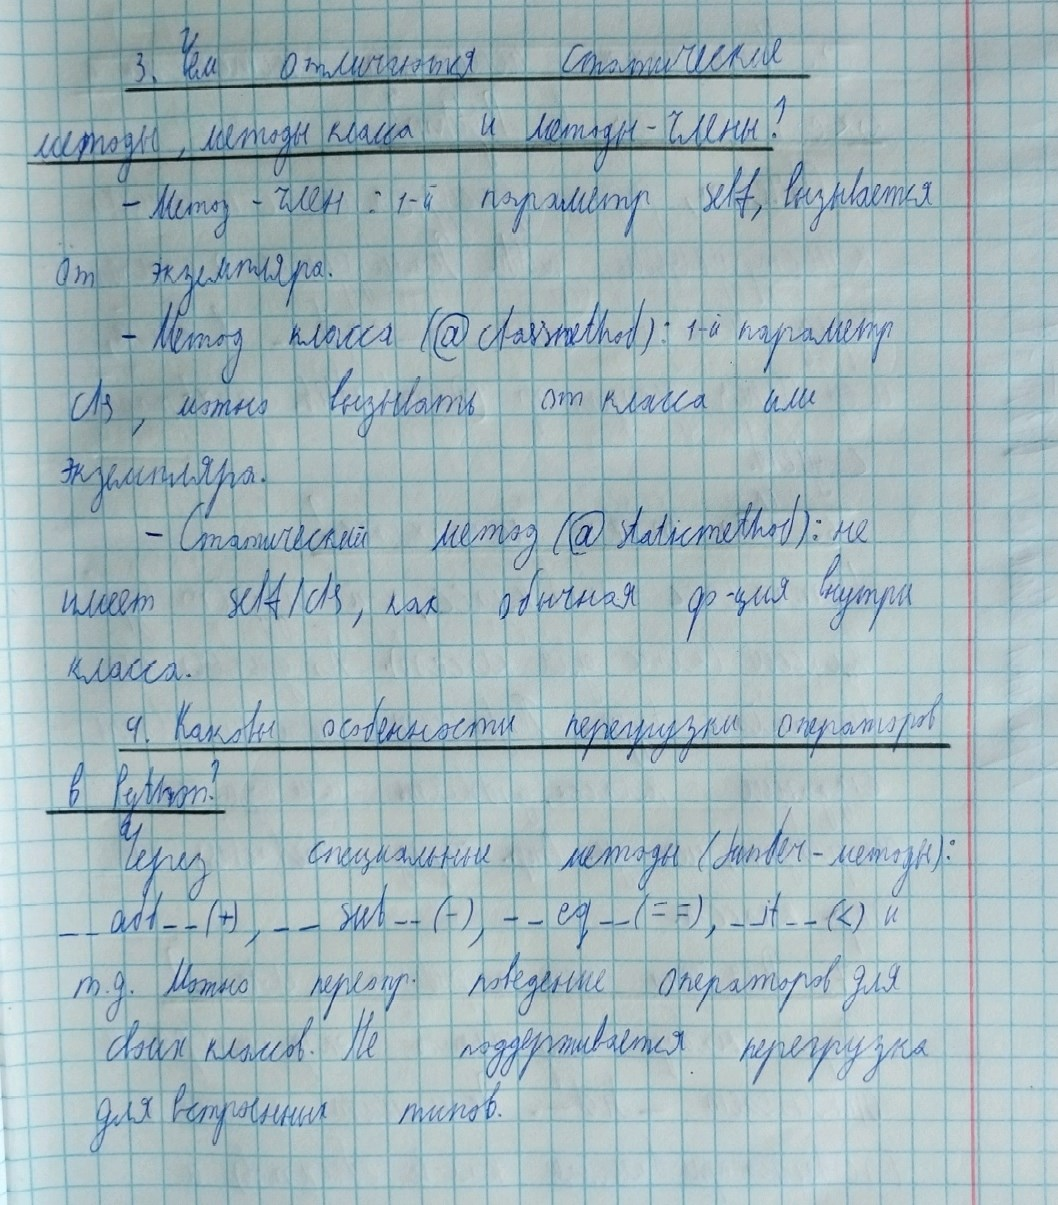 3. Чем отличаются статические
методы, методы класса и методы-члены?
- Метод-член: 1-й параметр self, вызывается
от экземпляра.
- Метод класса (@classmethod): 1-й параметр
cls, можно вызывать от класса или
экземпляра.
- Статический метод (@staticmethod): не
имеет self/cls, как обычная ф-ция внутри
класса.
4. Каковы особенности перегрузки операторов
в Python?
Через специальные методы (dunder-методы):
__add__(+), __sub__(-), __eq__(==), __lt__(<) и
т.д. Можно переопр. поведение операторов для
своих классов. Не поддерживается перегрузка
для встроенных типов.